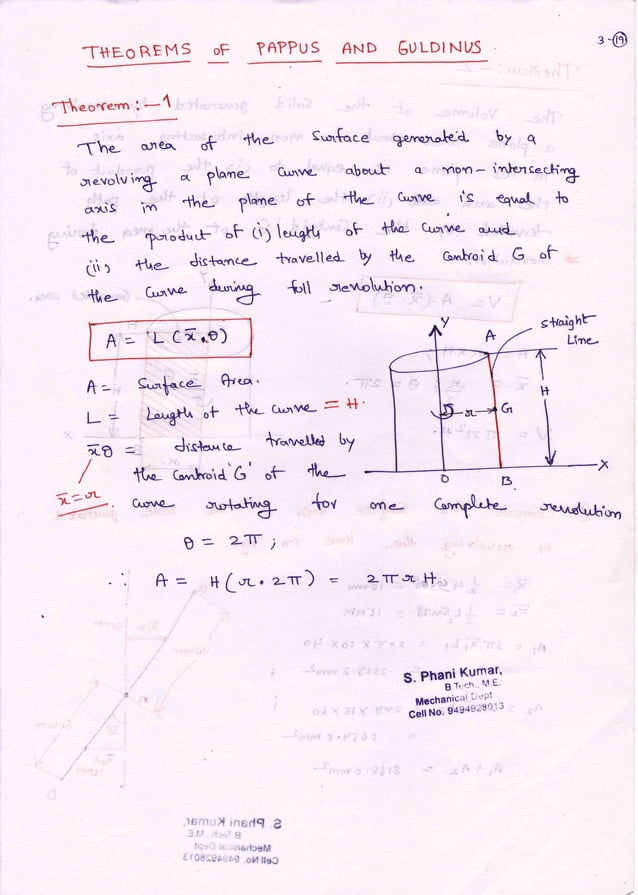 3-19
THEOREMS OF PAPPUS AND GULDINUS.
Theorem:-1
The area of the Surface generated by a
revolving a plane Curve about a non-intersecting
axis in the plane of the Curve is equal to
the product of (i) length of the Curve and
(ii) the distance travelled by the Centroid G of
the Curve during full revolution.
A = L (x̄.θ)
A = Surface Area.
L = Length of the curve = H.
x̄θ = distance travelled by
the Centroid 'G' of the
x̄=r
curve rotating for one Complete revolution
θ = 2π ;
∴ A = H(r.2π) = 2πrH.
Y
A
straight
Line
H
r
G
X
O
B
S. Phani Kumar,
B Tech., M.E.
Mechanical Dept
Cell No. 9494928013